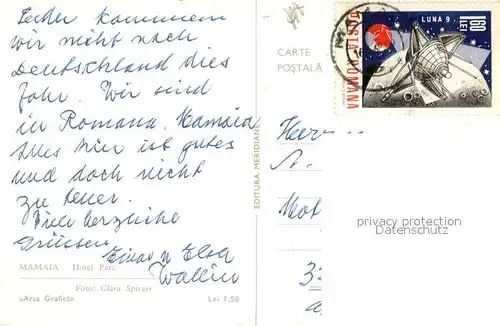 Leider kommen
wir nicht nach
Deutschland dies
Jahr. Wir sind
in Romana. Mamaia
Alles hier ist gutes
und doch nicht
zu teuer.
Viele herzliche
Grüssen
Einar u Elsa
Wallin
MAMAIA Hotel Parc
Foto: Clara Spitzer
«Arta Grafică» Lei 1,50
EDITURA MERIDIANE
CARTE
POȘTALĂ
POSTA ROMANA
LUNA 9
1,60
LEI
Herr
A.
Mot
privacy protection
Datenschutz
3